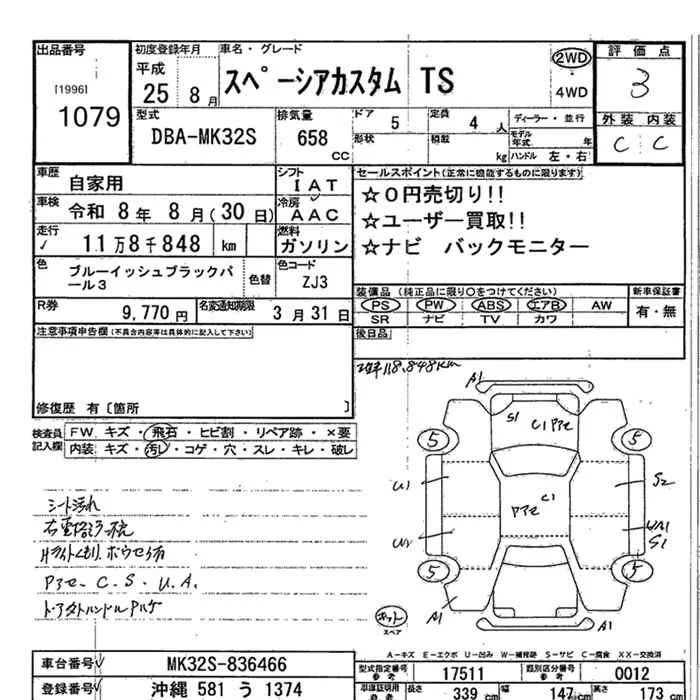 出品番号 初度登録年月 車名・グレード 評価点
[1996] 平成 スペーシアカスタム TS 2WD 3
1079 25 8月 4WD
型式 排気量 ドア 5 定員 4人 ディーラー・並行 外装 内装
DBA-MK32S 658 CC 形状 積載 kg モデル年式 年 ハンドル 左・右 C C
車歴 自家用 シフト IAT セールスポイント(正常に機能するものに限ります)
車検 令和 8年 8月(30日) 冷房 AAC ☆0円売切り!!
☆ユーザー買取!!
走行 ✓ 11万8千848 km 燃料 ガソリン ☆ナビ バックモニター
色 ブルーイッシュブラックパール3 色替 色コード ZJ3
装備品(純正品に限り〇をつけてください) 新車保証書
R券 9,770円 名変通知期限 3月31日 PS PW ABS エアB AW 有・無
SR ナビ TV カワ
注意事項申告欄(不具合内容等は具体的に記入して下さい) 後日品
118.848km
修復歴 有〔箇所 〕
検査員記入欄 FW キズ・飛石・ヒビ割・リペア跡・×要
内装・キズ・汚レ・コゲ・穴・スレ・キレ・破レ
A1
S1 C1 アセ
5 5
U1 S2
アセ C1
S1
5 5
A1 A1
シート汚れ
アセ. C. S. U. A.
スペア
A-キズ E-エクボ U-凹み W-補修跡 S-サビ C-腐食 XX-交換済
車台番号 ✓ MK32S-836466 型式指定番号 参考 17511 類別区分番号 参考 0012
登録番号 ✓ 沖縄 581 う 1374 車庫証明用 参考 長さ 339 cm 幅 147 cm 高さ 173 cm